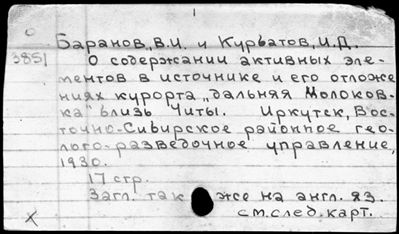 Баранов, В.И. и Курбатов, И.Д.
3851
О содержании активных эле-
ментов в источнике и его отложе
ниях курорта „дальняя Молоков-
ка" близь Читы. Иркутск, Вос-
точно-Сибирское районное гео-
лого-разведочное управление,
1930.
17 стр.
Загл. так же на англ. яз.
см. след. карт.
X